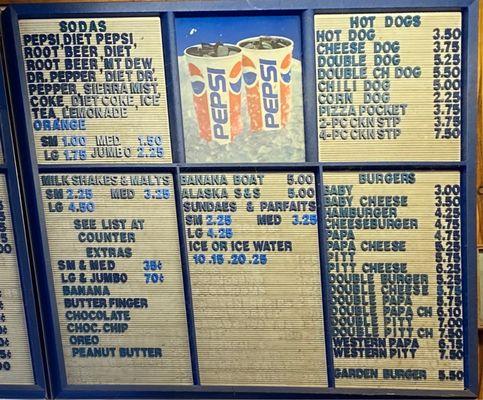 SODAS
PEPSI DIET PEPSI,
ROOT BEER, DIET,
ROOT BEER, MT DEW,
DR. PEPPER, DIET DR.
PEPPER, SIERRA MIST,
COKE, DIET COKE, ICE
TEA, LEMONADE
ORANGE
SM 1.00 MED 1.50
LG 1.75 JUMBO 2.25
PEPSI PEPSI
HOT DOGS
HOT DOG 3.50
CHEESE DOG 3.75
DOUBLE DOG 5.25
DOUBLE CH DOG 5.50
CHILI DOG 5.00
CORN DOG 2.25
PIZZA POCKET 3.75
2-PC CKN STP 3.75
4-PC CKN STP 7.50
MILK SHAKES & MALTS
SM 2.25 MED 3.25
LG 4.50
SEE LIST AT
COUNTER
EXTRAS
SM & MED 35¢
LG & JUMBO 70¢
BANANA
BUTTER FINGER
CHOCOLATE
CHOC. CHIP
OREO
PEANUT BUTTER
BANANA BOAT 5.00
ALASKA S&S 5.00
SUNDAES & PARFAITS
SM 2.25 MED 3.25
LG 4.25
ICE OR ICE WATER
10.15.20.25
BURGERS
BABY 3.00
BABY CHEESE 3.50
HAMBURGER 4.25
CHEESEBURGER 4.75
PAPA 4.75
PAPA CHEESE 5.25
PITT 5.75
PITT CHEESE 6.25
DOUBLE BURGER 5.25
DOUBLE CHEESE
DOUBLE PAPA 5.75
DOUBLE PAPA CH 6.10
DOUBLE PITT 7.00
DOUBLE PITT CH 7.50
WESTERN PAPA
WESTERN PITT 7.50
GARDEN BURGER 5.50